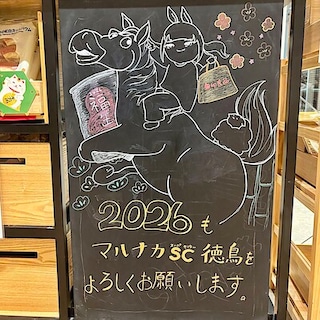 2026も
マルナカSC徳島を
よろしくお願いします。